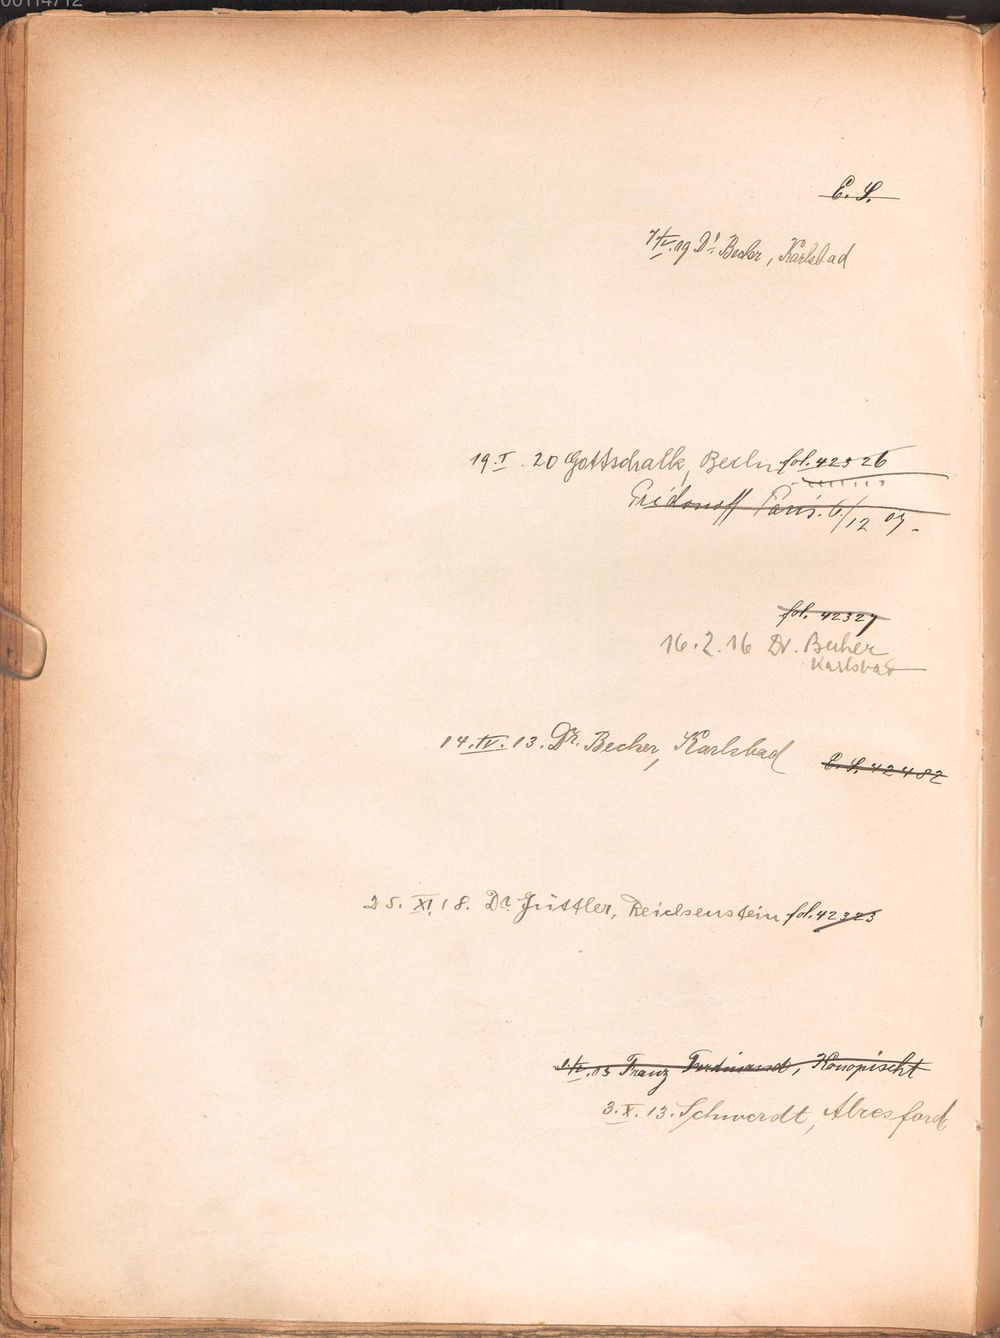 00114712
E. S.
7/IV.19 Dr. Becher, Karlsbad
19.I.20 Gottschalk, Berlin fol. 42326
Paris. 6/12 07.
fol. 42327
16.2.16 Dr. Becher
Karlsbad
14.IV.13. Dr. Becher, Karlsbad
E. S. 42482
25.XI.18. Dr. Güttler, Reichenstein fol. 42323
Franz Ferdinand, Konopischt
3.X.13. Schwerdt, Alresford